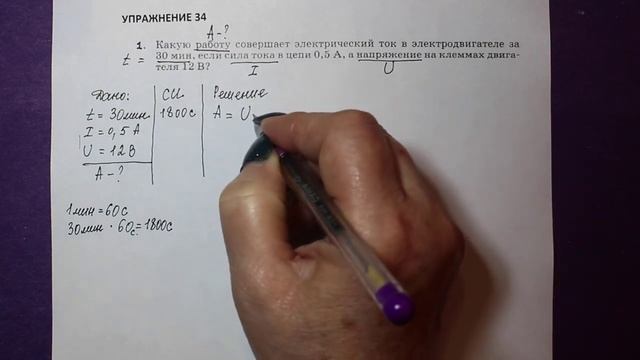 УПРАЖНЕНИЕ 34
A-?
1. Какую работу совершает электрический ток в электродвигателе за
t = 30 мин, если сила тока в цепи 0,5 А, а напряжение на клеммах двига-
теля 12 В?
I U
Дано: СИ Решение
t = 30мин 1800с A = U
I = 0,5 A
U = 12 В
A - ?
1мин = 60с
30мин · 60с = 1800с